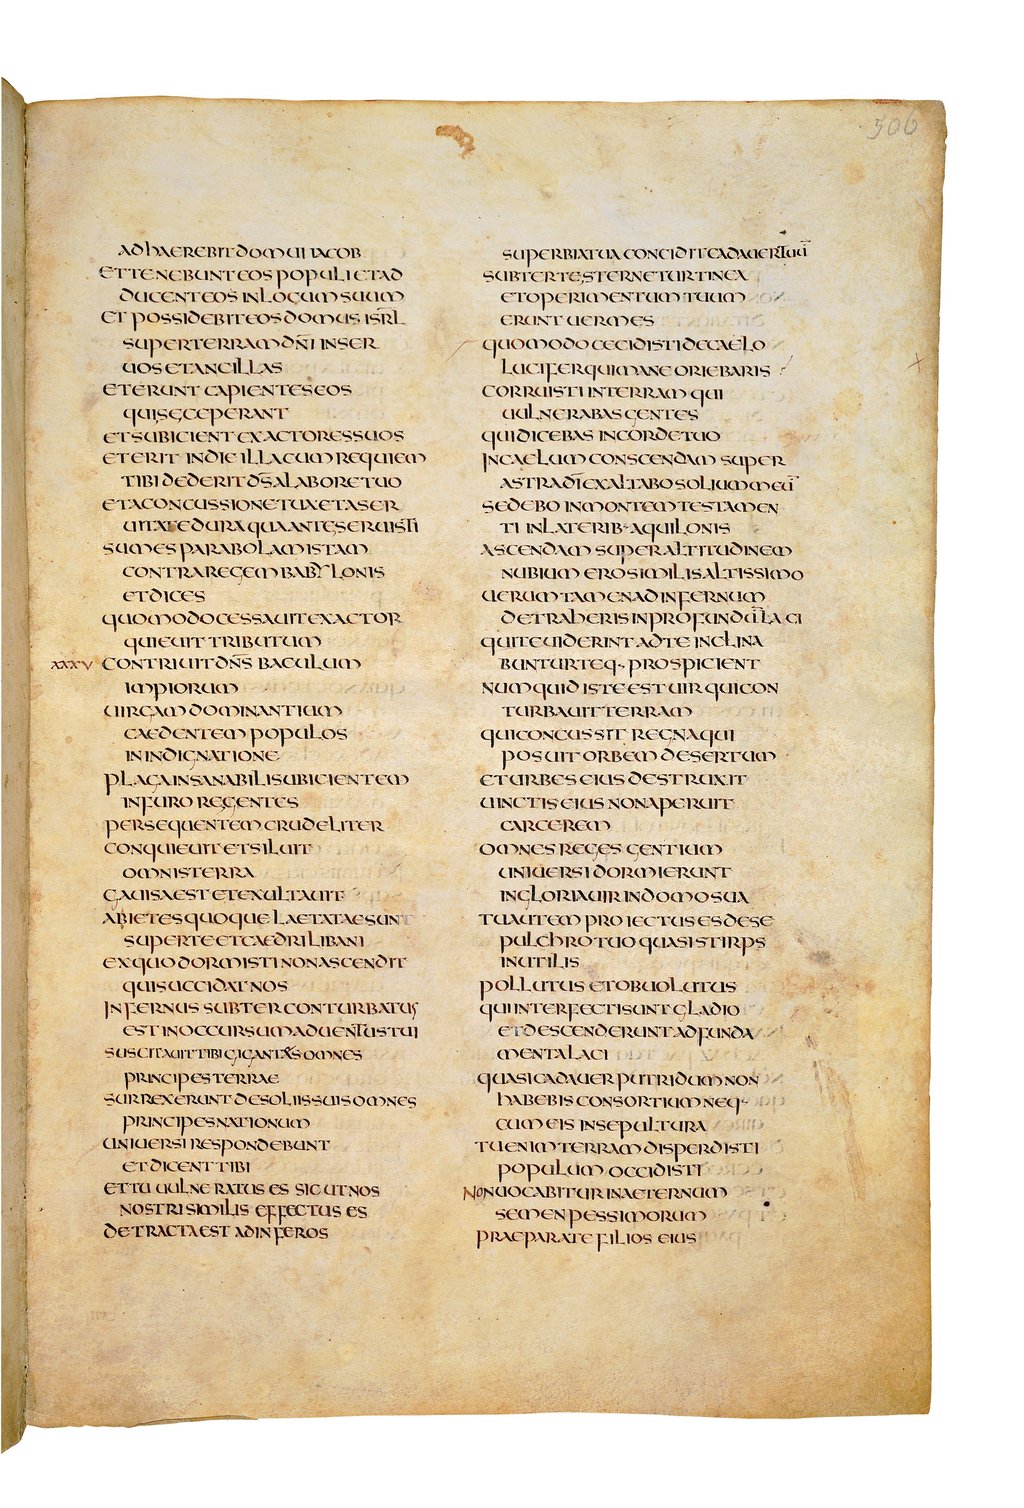 506
ADHAEREBIT DOMUI IACOB
ET TENEBUNT EOS POPULI ET AD
DUCENT EOS IN LOCUM SUUM
ET POSSIDEBIT EOS DOMUS ISRL
SUPER TERRAM DNI IN SER
UOS ET ANCILLAS
ET ERUNT CAPIENTES EOS
QUI SE CEPERANT
ET SUBICIENT EXACTORES SUOS
ET ERIT IN DIE ILLA CUM REQUIEM
TIBI DEDERIT DS A LABORE TUO
ET A CONCUSSIONE TUA ET A SER
UITUTE DURA QUA ANTE SERUISTI
SUMES PARABOLAM ISTAM
CONTRA REGEM BABYLONIS
ET DICES
QUOMODO CESSAUIT EXACTOR
QUIEUIT TRIBUTUM
XXXV CONTRIUIT DNS BACULUM
IMPIORUM
UIRGAM DOMINANTIUM
CAEDENTEM POPULOS
IN INDIGNATIONE
PLAGA INSANABILI SUBICIENTEM
IN FURORE GENTES
PERSEQUENTEM CRUDELITER
CONQUIEUIT ET SILUIT
OMNIS TERRA
GAUISA EST ET EXULTAUIT
ABIETES QUOQUE LAETATAE SUNT
SUPER TE ET CAEDRI LIBANI
EX QUO DORMISTI NON ASCENDIT
QUI SUCCIDAT NOS
INFERNUS SUBTER CONTURBATUS
EST IN OCCURSUM ADUENTUS TUI
SUSCITAUIT TIBI GIGANTAS OMNES
PRINCIPES TERRAE
SURREXERUNT DE SOLIIS SUIS OMNES
PRINCIPES NATIONUM
UNIUERSI RESPONDEBUNT
ET DICENT TIBI
ET TU UULNERATUS ES SICUT NOS
NOSTRI SIMILIS EFFECTUS ES
DETRACTA EST AD INFEROS
SUPERBIA TUA CONCIDIT CADAUER TUU
SUBTER TE STERNETUR TINEA
ET OPERIMENTUM TUUM
ERUNT UERMES
QUOMODO CECIDISTI DE CAELO
LUCIFER QUI MANE ORIEBARIS
CORRUISTI IN TERRAM QUI
UULNERABAS GENTES
QUI DICEBAS IN CORDE TUO
IN CAELUM CONSCENDAM SUPER
ASTRA DI EXALTABO SOLIUM MEU
SEDEBO IN MONTEM TESTAMEN
TI IN LATERIB· AQUILONIS
ASCENDAM SUPER ALTITUDINEM
NUBIUM ERO SIMILIS ALTISSIMO
UERUM TAMEN AD INFERNUM
DETRAHERIS IN PROFUNDU LACI
QUI TE UIDERINT AD TE INCLINA
BUNTUR TEQ· PROSPICIENT
NUMQUID ISTE EST UIR QUI CON
TURBAUIT TERRAM
QUI CONCUSSIT REGNA QUI
POSUIT ORBEM DESERTUM
ET URBES EIUS DESTRUXIT
UINCTIS EIUS NON APERUIT
CARCEREM
OMNES REGES GENTIUM
UNIUERSI DORMIERUNT
IN GLORIA UIR IN DOMO SUA
TU AUTEM PROIECTUS ES DE SE
PULCHRO TUO QUASI STIRPS
INUTILIS
POLLUTUS ET OBUOLUTUS
QUI INTERFECTI SUNT GLADIO
ET DESCENDERUNT AD FUNDA
MENTA LACI
QUASI CADAUER PUTRIDUM NON
HABEBIS CONSORTIUM NEQ·
CUM EIS IN SEPULTURA
TU ENIM TERRAM DISPERDISTI
POPULUM OCCIDISTI
NON UOCABITUR IN AETERNUM
SEMEN PESSIMORUM
PRAEPARATE FILIOS EIUS